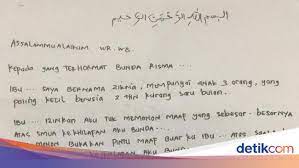 بسم الله الرحمن الرحيم
ASSALAMMUALAIKUM WR. WB
KEPADA YANG TERHORMAT BUNDA RISMA ...
IBU ... SAYA BERNAMA ZIKRIA, MEMPUNYAI ANAK 3 ORANG, YANG
PALING KECIL BERUSIA 2 THN KURANG SATU BULAN.
IBU ... IZINKAN AKU TUK MEMOHON MAAF YANG SEBESAR-BESARNYA
ATAS SEMUA KEKHILAFAN AKU BUNDA...
MOHON BUKAKAN PINTU MAAF BUAT KU IBU ... ATAS
KEKHILAFAN AKU BUNDA
detikcom